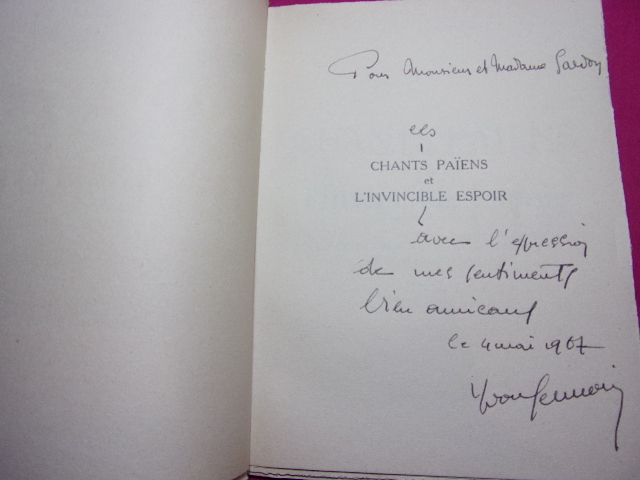 Pour Monsieur et Madame
ces
CHANTS PAÏENS
et
L'INVINCIBLE ESPOIR
avec l'expression
de mes sentiments
bien amicaux
le 4 mai 1967
Yvon